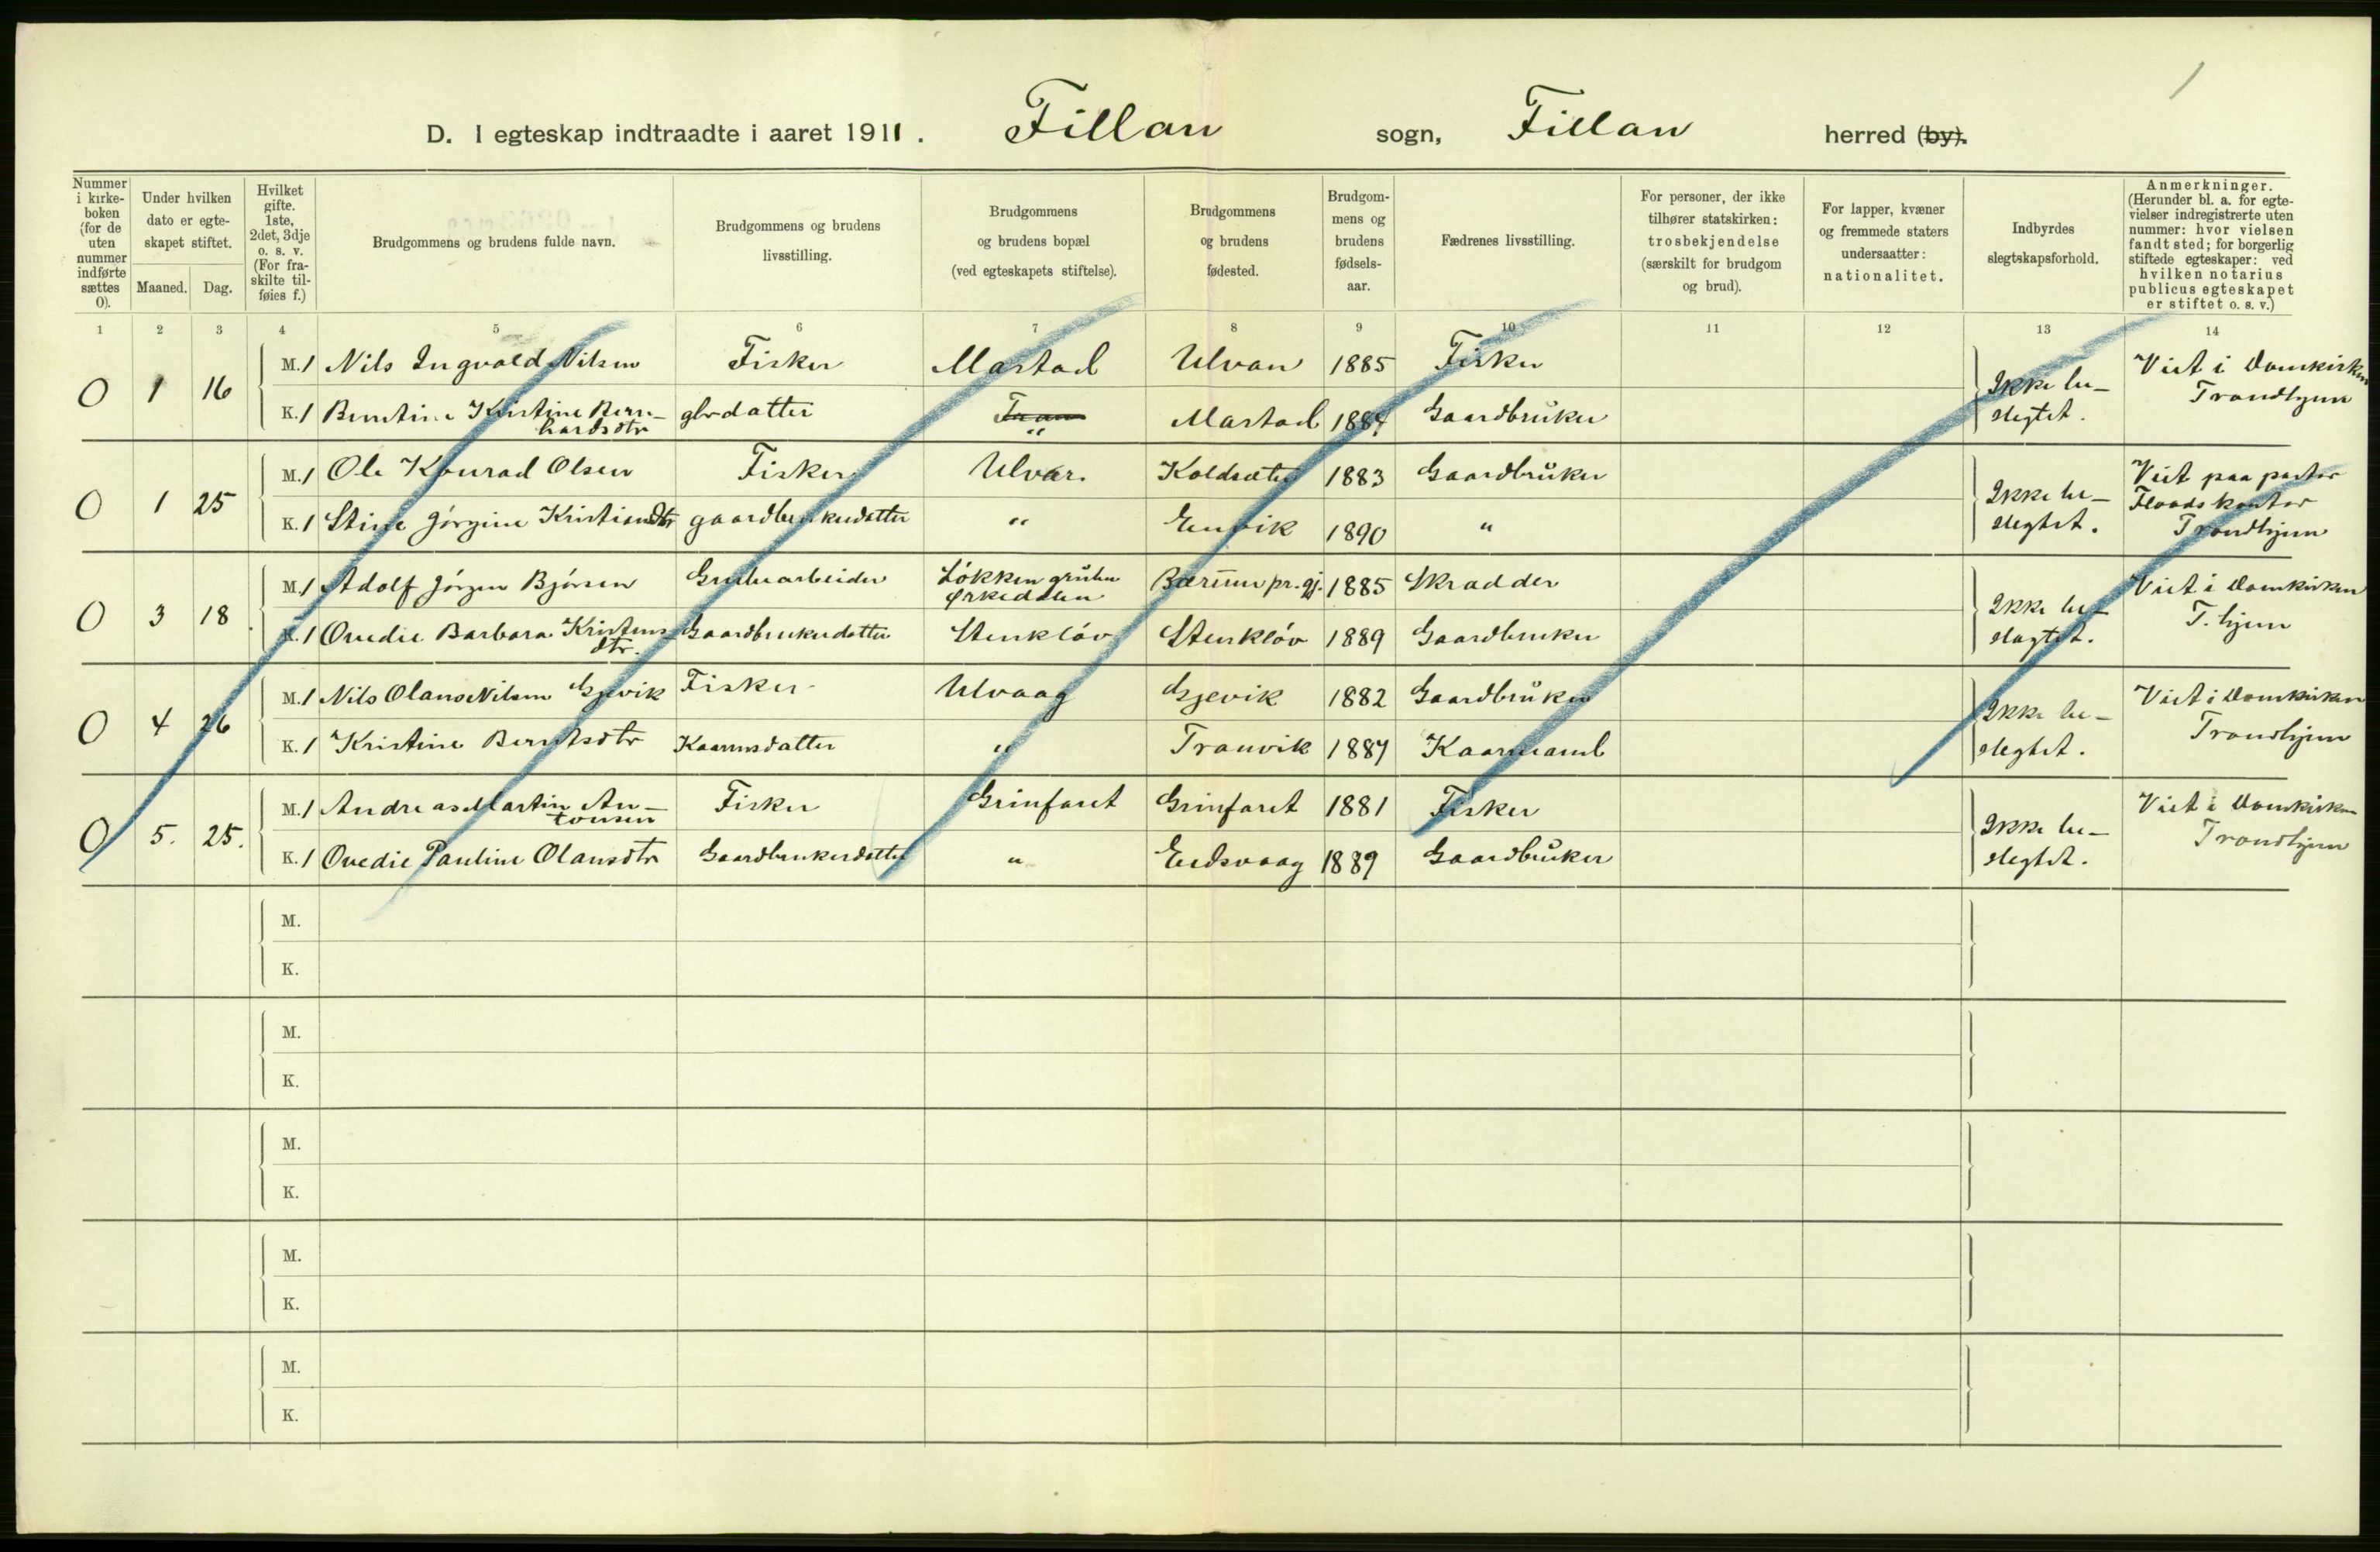 D. I egteskap indtraadte i aaret 1911. Fillan sogn, Fillan herred (by).
Nummer i kirke-boken (for de uten nummer indførte sættes 0).
Under hvilken dato er egte-skapet stiftet.
Maaned. Dag.
Hvilket gifte. 1ste, 2det, 3dje o. s. v. (For fra-skilte til-føies f.)
Brudgommens og brudens fulde navn.
Brudgommens og brudens livsstilling.
Brudgommens og brudens bopæl (ved egteskapets stiftelse).
Brudgommens og brudens fødested.
Brudgom-mens og brudens fødsels-aar.
Fædrenes livsstilling.
For personer, der ikke tilhører statskirken: trosbekjendelse (særskilt for brudgom og brud).
For lapper, kvæner og fremmede staters undersaatter: nationalitet.
Indbyrdes slegtskapsforhold.
Anmerkninger. (Herunder bl. a. for egte-vielser indregistrerte uten nummer: hvor vielsen fandt sted; for borgerlig stiftede egteskaper: ved hvilken notarius publicus egteskapet er stiftet o. s. v.)
1 2 3 4 5 6 7 8 9 10 11 12 13 14
0 1 16
M. 1 Nils Ingvald Nilsen Fisker Mastad Ulvan 1885 Fisker
K. 1 Berntine Kristine Bern-hardsdtr gbrdatter " Mastad 1884 Gaardbruker
Ikke be-slegtet.
Viet i Domkirken Trondhjem
0 1 25
M. 1 Ole Konrad Olsen Fisker Ulvan. Koldsæter 1883 Gaardbruker
K. 1 Stine Jørgine Kristiansdtr gaardbrukerdatter " 1890 "
Ikke be-slegtet.
Viet paa pastor Floods kontor Trondhjem
0 3 18
M. 1 Adolf Jørgen Bjørsen Grubearbeider Løkken grube Ørkedalen Bærum pr. gj. 1885 Skradder
K. 1 Ovedie Barbara Kristens-dtr. Gaardbrukerdatter Stenkløv Stenkløv 1889 Gaardbruker
Ikke be-slegtet.
Viet i Domkirken T.hjem
0 4 26
M. 1 Nils Olaus Nilsen Gjevik Fisker Ulvaag Gjevik 1882 Gaardbruker
K. 1 Kristine Berntsdtr Kaarmsdatter " Tranvik 1887 Kaarmand
Ikke be-slegtet.
Viet i Domkirken Trondhjem
0 5. 25.
M. 1 Andreas Martin An-tonsen Fisker Grinfaret Grinfaret 1881 Fisker
K. 1 Ovedie Pauline Olausdtr Gaardbrukerdatter " Eidsvaag 1889 Gaardbruker
Ikke be-slegtet.
Viet i Domkirken Trondhjem
M.
K.
M.
K.
M.
K.
M.
K.
M.
K.